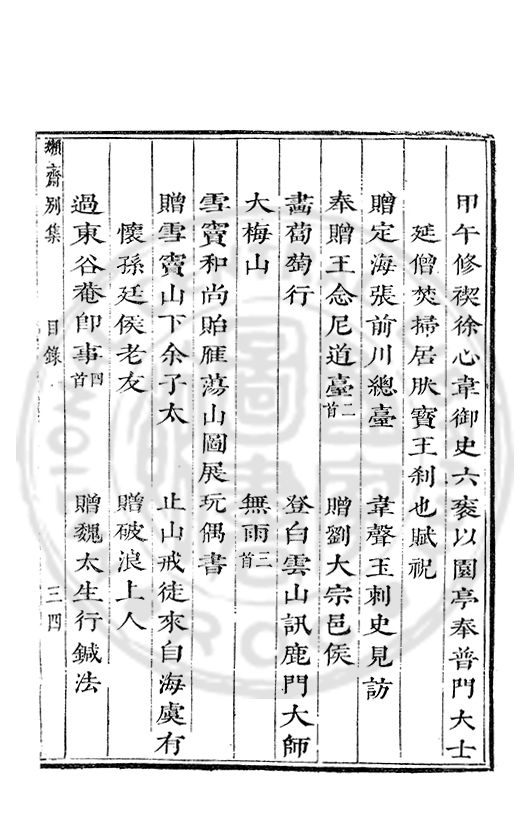 甲午修禊徐心韋御史六袠以園亭奉普門大士
延僧焚掃居肰寶王刹也賦祝
贈定海張前川總臺　韋聲玉刺史見訪
奉贈王念尼道臺二首　贈劉大宗邑侯
畵萄萄行　登白雲山訊鹿門大師
大梅山　無雨三首
雪竇和尚貽雁蕩山圖展玩偶書
贈雪竇山下余子太　止山戒徒來自海虞有
懷孫廷侯老友　贈破浪上人
過東谷菴卽事四首　贈魏太生行鍼法
嬾齋別集　目錄　三四